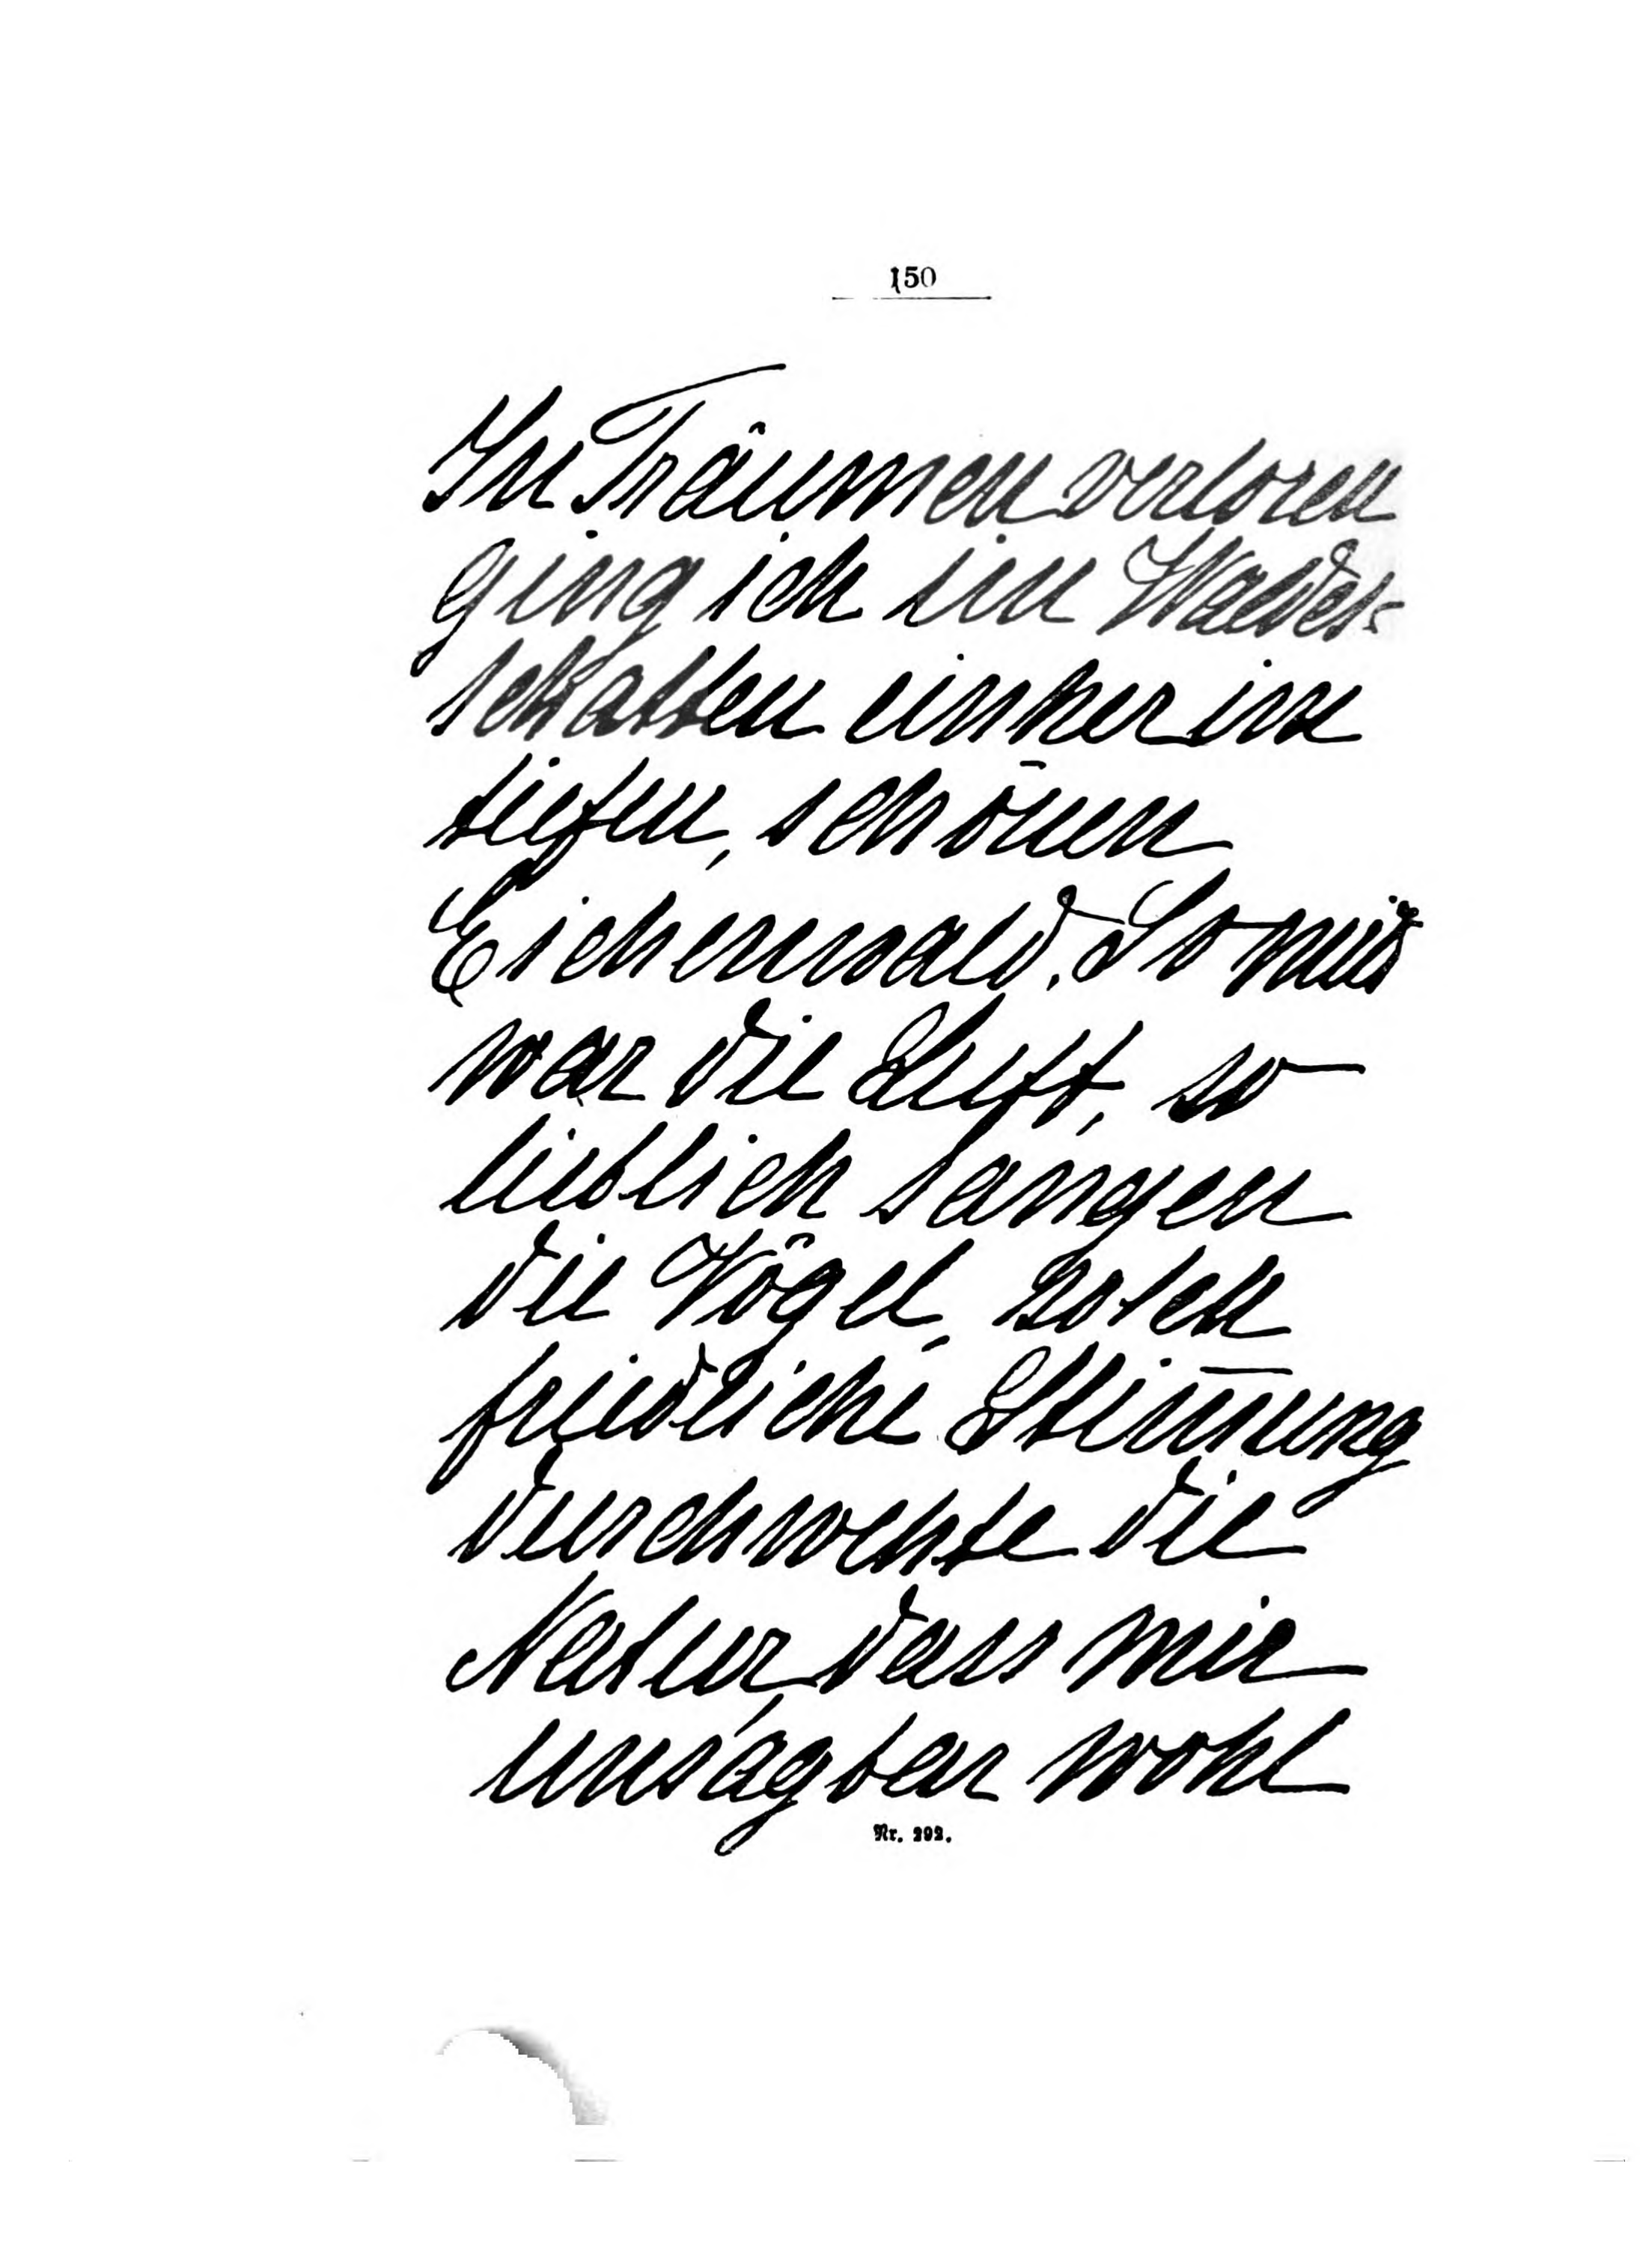 150
In Träumen verloren
ging ich im Waldes-
schatten einher im
tiefen, schönen
Eichenwald. So mild
war die Luft, so
lieblich sangen
die Vögel, solch
friedliche Stim̅ung
durchwehte die
Natur, dass mir
unsagbar wohl
Nr. 292.